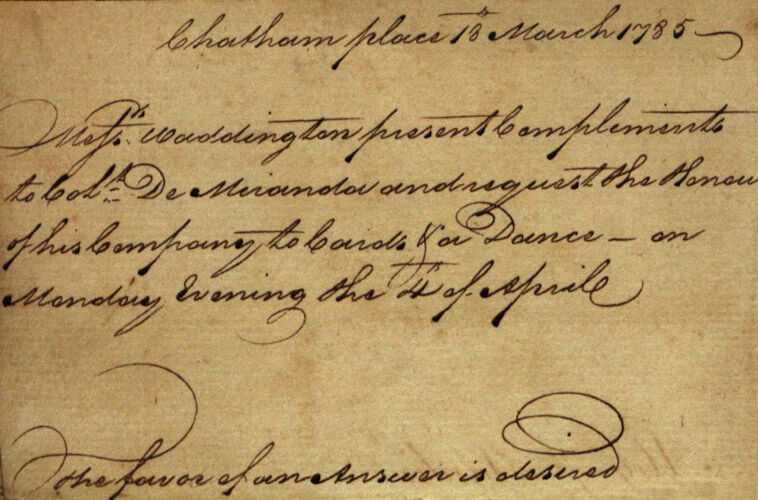 Chatham place 18th March 1785
Messrs. Waddington present Complements
to Coll. De Miranda and request the Honou
of his Company to Cards & a Dance — on
Monday Evening the 4th of April
the favor of an Answer is desired